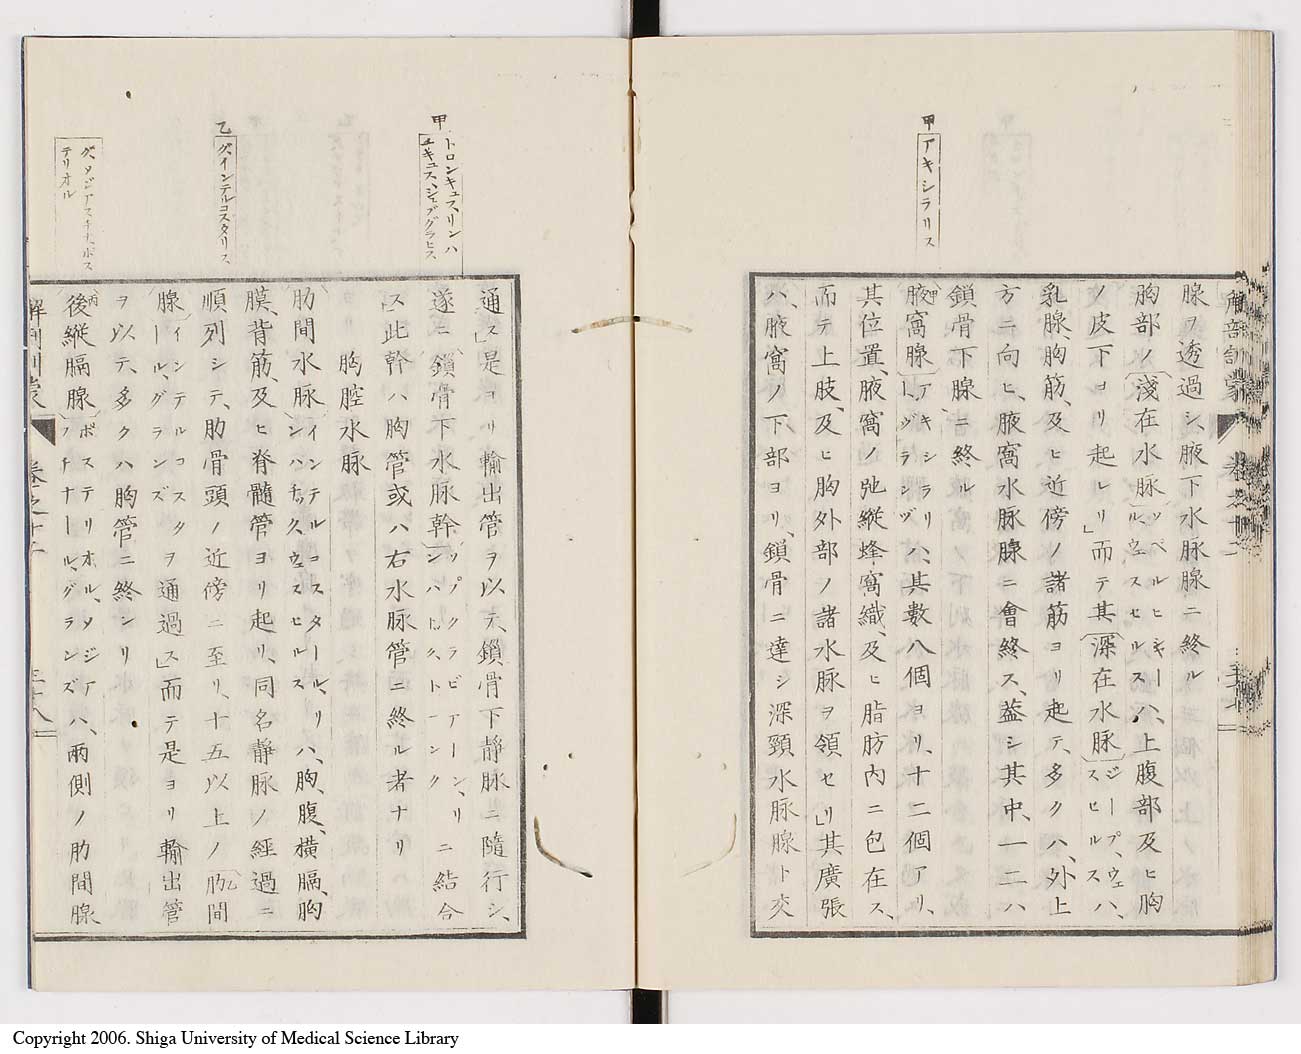 甲
アキシラリス
解剖訓蒙
卷之十二
腺ヲ透過シ、腋下水脉腺ニ終ル
胸部ノ(淺在水脉)(ルウェスセルスッペルヒシャー)ハ、上腹部及ヒ胸
ノ皮下ヨリ起レリ」而テ其(深在水脉)(ジープ、ウェスセルス)ハ、
乳腺、胸筋、及ヒ近傍ノ諸筋ヨリ起テ、多クハ、外上
方ニ向ヒ、腋窩水脉腺ニ會終ス、蓋シ其中、一二ハ
鎖骨下腺ニ終ル
腋窩腺(アキシラリグランヅ)ハ、其數八個ヨリ、十二個アリ、
其位置、腋窩ノ弛縱蜂窩織、及ヒ脂肪內ニ包在ス、
而テ上肢、及ヒ胸外部ノ諸水脉ヲ領セリ」其廣張
ハ、腋窩ノ下部ヨリ、鎖骨ニ達シ深頸水脉腺ト交
甲
トロンキュスリンハ
ュキュス、シュブグラヒス
乙
グ、インテルコスタリス
グ、メジアスチナ、ポス
テリオル
通ス」是ヨリ輸出管ヲ以テ、鎖骨下靜脉ニ隨行シ、
遂ニ(鎖骨下水脉幹)(ップクラビアーン、リンハトク、トーンク)ニ結合
ス」此幹ハ胸管或ハ右水脉管ニ終ル者ナリ
胸腔水脉
肋間水脉(インテルコスタール、リンハチク、ウェスセルス)ハ、胸、腹、橫膈、胸
膜、背筋、及ヒ脊髓管ヨリ起リ、同名靜脉ノ經過ニ
順列シテ、肋骨頭ノ近傍ニ至リ、十五以上ノ肋間
腺(インテルコスタール、グランズ)ヲ通過ス」而テ是ヨリ輸出管
ヲ以テ、多クハ胸管ニ終ンリ
後縱膈腺(ポステリオル、メジアスチナール、グランズ)ハ、兩側ノ肋間腺
解剖訓蒙
卷之十二
三十八
Copyright 2006. Shiga University of Medical Science Library